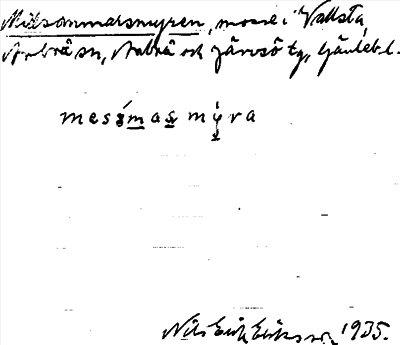 Midsommarsmyren, mosse i Vallsta,
Arbrå sn, Arbrå och Järvsö tg, Gävleb. l.
mesómas mýra
Nils Erik Eriksson, 1935.